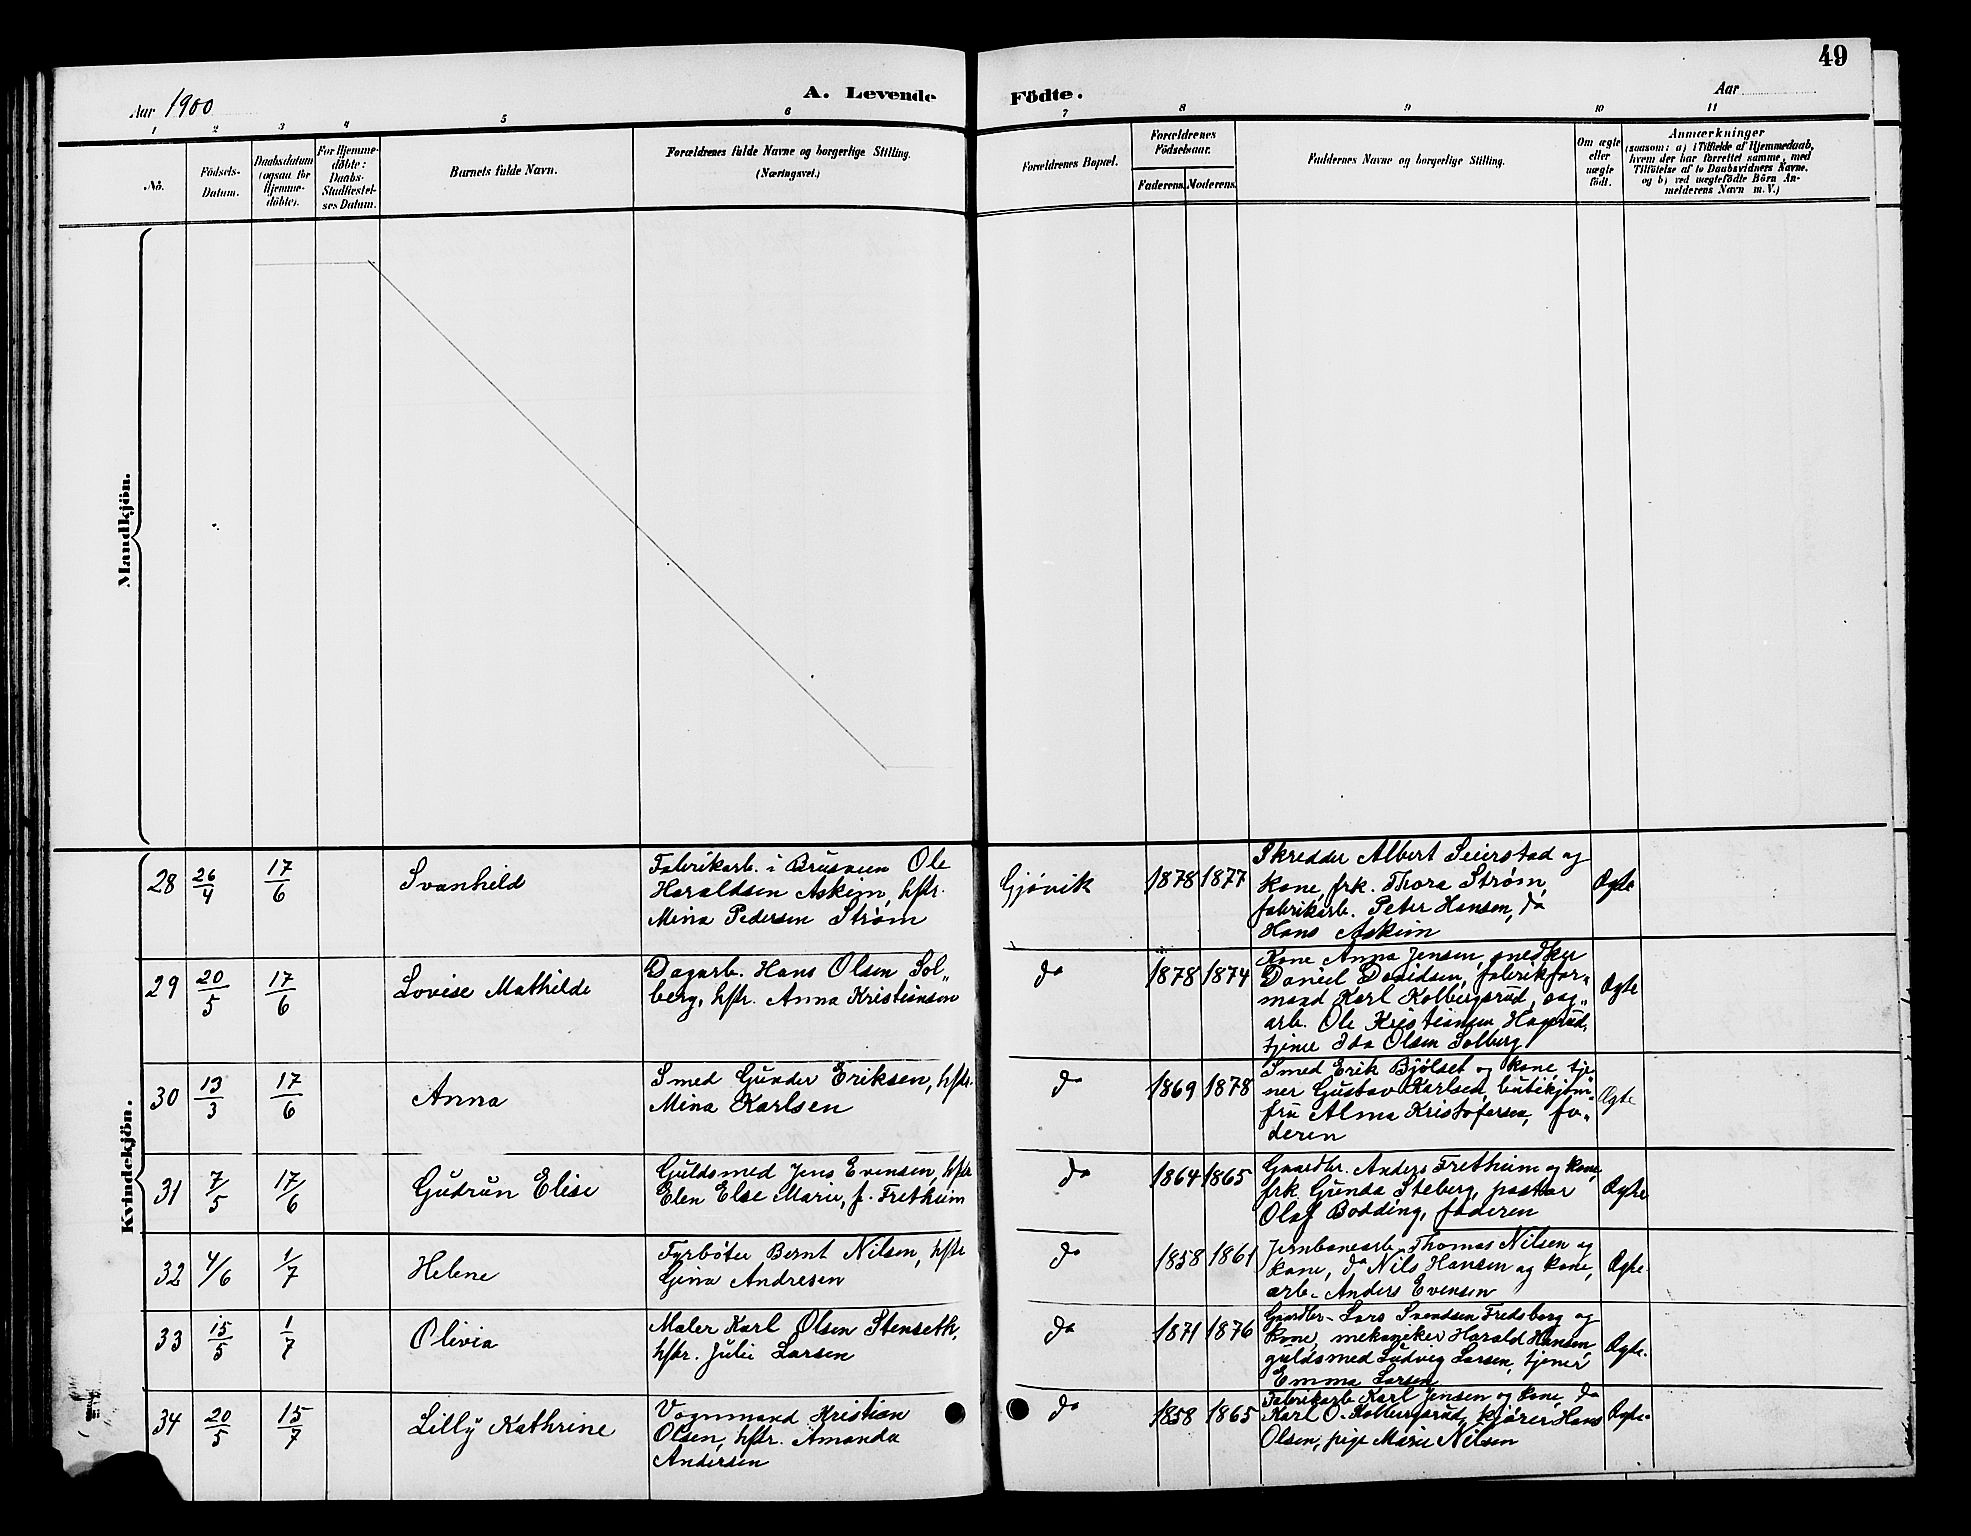 49
Aar 1900
A. Levende Födte.
Aar
1 2 3 4 5 6 7 8 9 10 11
No.
Födsels-
Datum.
Daabsdatum
(ogsaa for
Hjemme-
döbte).
For Hjemme-
döbte:
Daabs-
Stadfæstel-
ses Datum.
Barnets fulde Navn.
Forældrenes fulde Navne og borgerlige Stilling.
(Næringsvei.)
Forældrenes Bopæl.
Forældrenes
Födselsaar.
Faderens. Moderens.
Faddernes Navne og borgerlige Stilling.
Om ægte
eller
uægte
födt.
Anmærkninger
(saasom: a) i Tilfælde af Hjemmedaab,
hvem der har forrettet samme, med
Tilföielse af to Daabsvidners Navne,
og b) ved uægtefödte Börn An-
melderens Navn m. V.)
Mandkjön.
Kvindekjön.
28
26/4
17/6
Svanhild
Fabrikarb. i Brusveen Ole
Haraldsen Askim, hstr.
Mina Pedersen Strøm
Gjøvik
1878 1877
Skredder Albert Seierstad og
kone, frk. Thora Strøm,
fabrikarb. Peter Hansen, do
Hans Askim
Ægte
29
20/5
17/6
Lovise Mathilde
Dagarb. Hans Olsen Sol-
berg, hstr. Anna Kristiansen
do
1878 1874
Kone Anna Jensen, snedker
Daniel Davidsen, fabrikfor-
mand Karl Kolbergsrud, sag-
arb. Ole Kristiansen Hagerud,
tjener Ida Olsen Solberg
Ægte
30
13/3
17/6
Anna
Smed Gunder Eriksen, hstr.
Mina Karlsen
do
1869 1878
Smed Erik Bjølset og kone, tje-
ner Gustav Karlsen, butikjom-
fru Alma Kristofersen, fa-
deren
Ægte
31
7/5
17/6
Gudrun Elise
Guldsmed Jens Evensen, hstr
Elen Else Marie, f. Fretheim
do
1864 1865
Gaardbr. Anders Fretheim og kone,
frk. Gunda Steberg, pastor
Olaf Bodding, faderen
Ægte
32
4/6
1/7
Helene
Fyrbøter Bernt Nilsen, hstr
Gina Andresen
do
1858 1861
Jernbanearb. Thomas Nilsen og
kone, do Nils Hansen og kone,
arb. Anders Evensen
Ægte
33
15/5
1/7
Olivia
Maler Karl Olsen Stenseth,
hstr. Julie Larsen
do
1871 1876
Gaardbr. Lars Svendsen Fredsberg og
kone, mekaniker Harald Hansen,
guldsmed Ludvig Larsen, tjener
Emma Larsen
Ægte.
34
20/5
15/7
Lilly Kathrine
Vognmand Kristian
Olsen, hstr. Amanda
Andersen
do
1858 1865
Fabrikarb. Karl Jensen og kone, do
Karl O. Kolbergsrud, kjører Hans
Olsen, pige Marie Nilsen
Ægte.